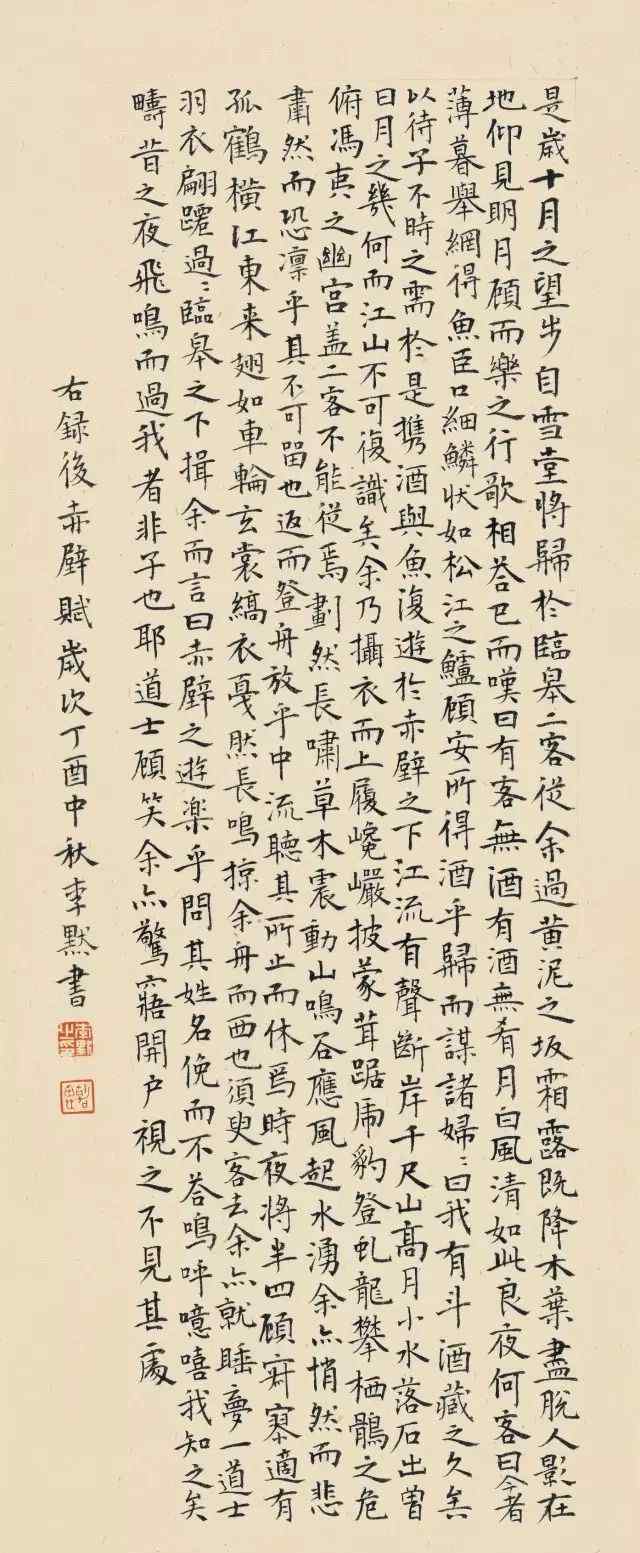 是歲十月之望步自雪堂將歸於臨皋二客從余過黃泥之坂霜露既降木葉盡脫人影在
地仰見明月顧而樂之行歌相荅已而嘆曰有客無酒有酒無肴月白風清如此良夜何客曰今者
薄暮舉網得魚巨口細鱗狀如松江之鱸顧安所得酒乎歸而謀諸婦〻曰我有斗酒藏之久矣
以待子不時之需於是携酒與魚復遊於赤壁之下江流有聲斷岸千尺山高月小水落石出曾
日月之幾何而江山不可復識矣余乃攝衣而上履巉巖披蒙茸踞虎豹登虬龍攀栖鶻之危
俯馮夷之幽宮盖二客不能從焉劃然長嘯草木震動山鳴谷應風起水湧余亦悄然而悲
肅然而恐凛乎其不可留也返而登舟放乎中流聽其所止而休焉時夜將半四顧寂寥適有
孤鶴橫江東来翅如車輪玄裳縞衣戛然長鳴掠余舟而西也須臾客去余亦就睡夢一道士
羽衣翩躚過〻臨皋之下揖余而言曰赤壁之遊楽乎問其姓名俛而不荅鳴呼噫嘻我知之矣
疇昔之夜飛鳴而過我者非子也耶道士顧笑余亦驚寤開户視之不見其處
右録後赤壁賦歲次丁酉中秋李默書
李默之印